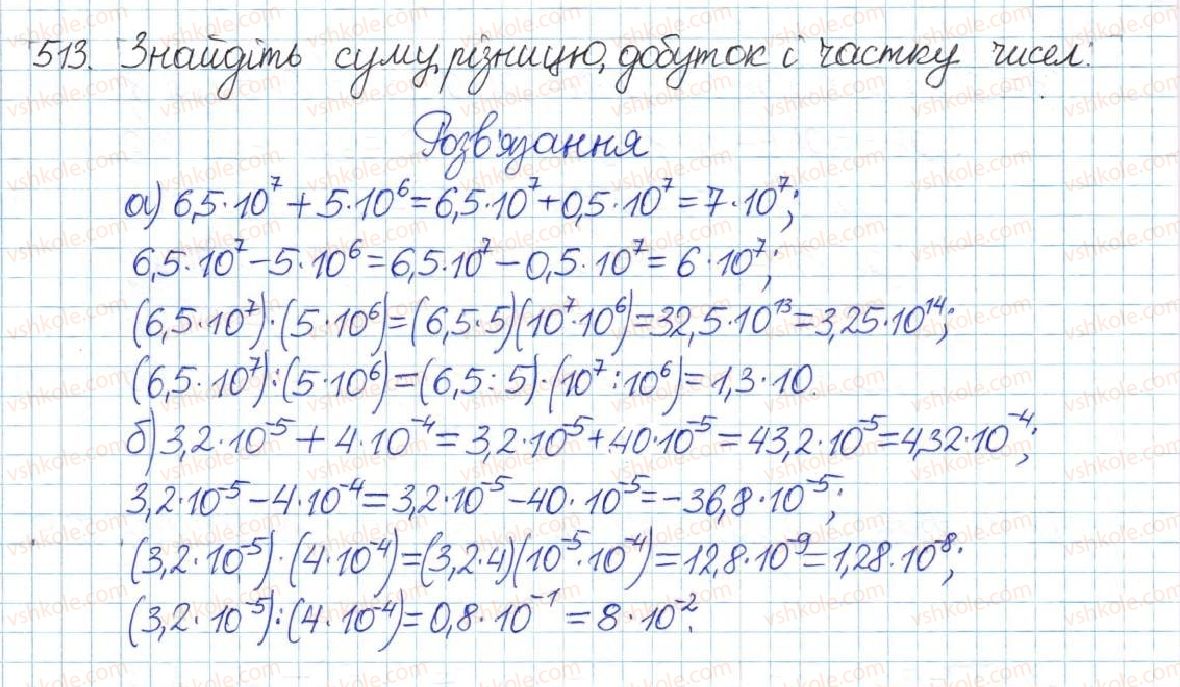 513. Знайдіть суму, різницю, добуток і частку чисел:
Розв'язання
а) 6,5·10⁷ + 5·10⁶ = 6,5·10⁷ + 0,5·10⁷ = 7·10⁷;
6,5·10⁷ – 5·10⁶ = 6,5·10⁷ – 0,5·10⁷ = 6·10⁷;
(6,5·10⁷)·(5·10⁶) = (6,5·5)(10⁷·10⁶) = 32,5·10¹³ = 3,25·10¹⁴;
(6,5·10⁷):(5·10⁶) = (6,5:5)·(10⁷:10⁶) = 1,3·10.
б) 3,2·10⁻⁵ + 4·10⁻⁴ = 3,2·10⁻⁵ + 40·10⁻⁵ = 43,2·10⁻⁵ = 4,32·10⁻⁴;
3,2·10⁻⁵ – 4·10⁻⁴ = 3,2·10⁻⁵ – 40·10⁻⁵ = –36,8·10⁻⁵;
(3,2·10⁻⁵)·(4·10⁻⁴) = (3,2·4)(10⁻⁵·10⁻⁴) = 12,8·10⁻⁹ = 1,28·10⁻⁸;
(3,2·10⁻⁵):(4·10⁻⁴) = 0,8·10⁻¹ = 8·10⁻².
vshkole.com